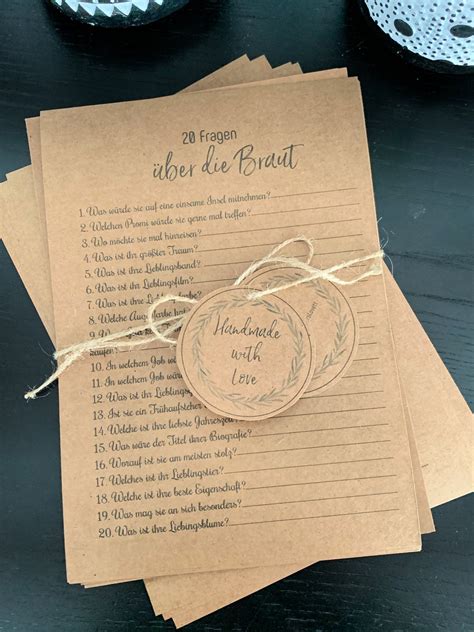 20 Fragen
über die Braut
1. Was würde sie auf eine einsame Insel mitnehmen?
2. Welchen Promi würde sie gerne mal treffen?
3. Wo möchte sie mal hinreisen?
4. Was ist ihr größter Traum?
5. Was ist ihre Lieblingsband?
6. Was ist ihr Lieblingsfilm?
8. Welche Augenfarbe hat
9. Wo
kaufen?
10. In welchem Job
11. In welchem Job wä
12. Was ist ihr Lieblings
13. Ist sie ein Frühaufsteher
14. Was ist ihre liebste Jahreszeit
15. Was wäre der Titel ihrer Biografie?
16. Worauf ist sie am meisten stolz?
17. Welches ist ihr Lieblingstier?
18. Welche ist ihre beste Eigenschaft?
19. Was mag sie an sich besonders?
20. Was ist ihre Lieblingsblume?
Handmade
with
Love